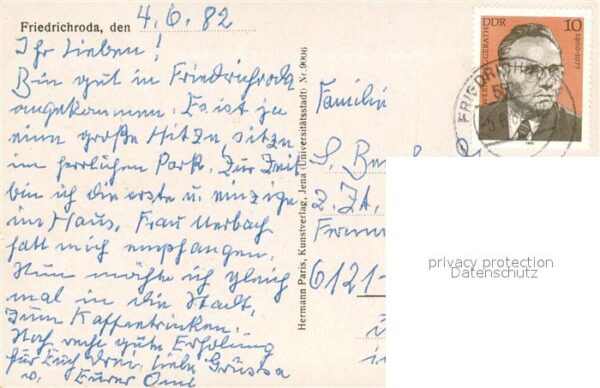 Friedrichroda, den 4.6.82
Ihr Lieben!
Bin gut in Friedrichroda
angekommen. Es ist ja
eine große Hitze, sitze
im herrlichen Park. Zur Zeit
bin ich die erste u. einzige
im Haus. Frau
hatt mich empfangen.
Nun möchte ich gleich
mal in die Stadt,
zum Kaffeetrinken.
Noch recht gute Erholung
für Euch drei. Liebe Grüsse
v. Eurer Omi
Hermann Paris, Kunstverlag, Jena (Universitätsstadt) Nr. 9006
Familie
z. Zt.
6121
DDR 10
1900-1977
privacy protection
Datenschutz